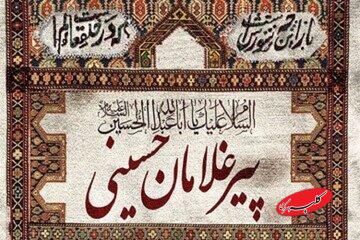 باز این چه شورش است
که در خلق عالم است
السلام علیک یا اباعبدالله الحسین
پیر غلامان حسینی